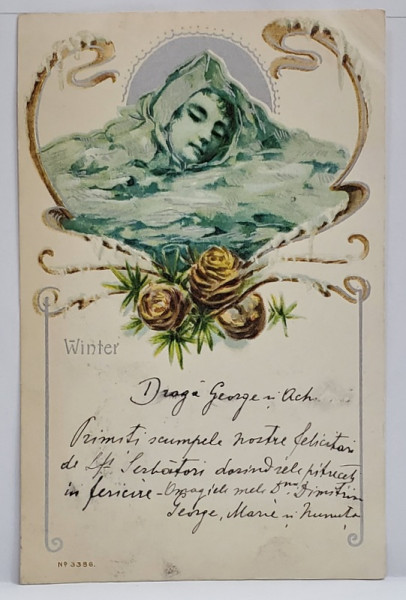 Winter
Dragă George și Ach
Primiti scumpele nostre felicitari
de Sf. Serbători dorindvele pitreceți
in fericire - Omagiele mele Dnei Dimitriu
George, Marie și Nunuța
No 3386.